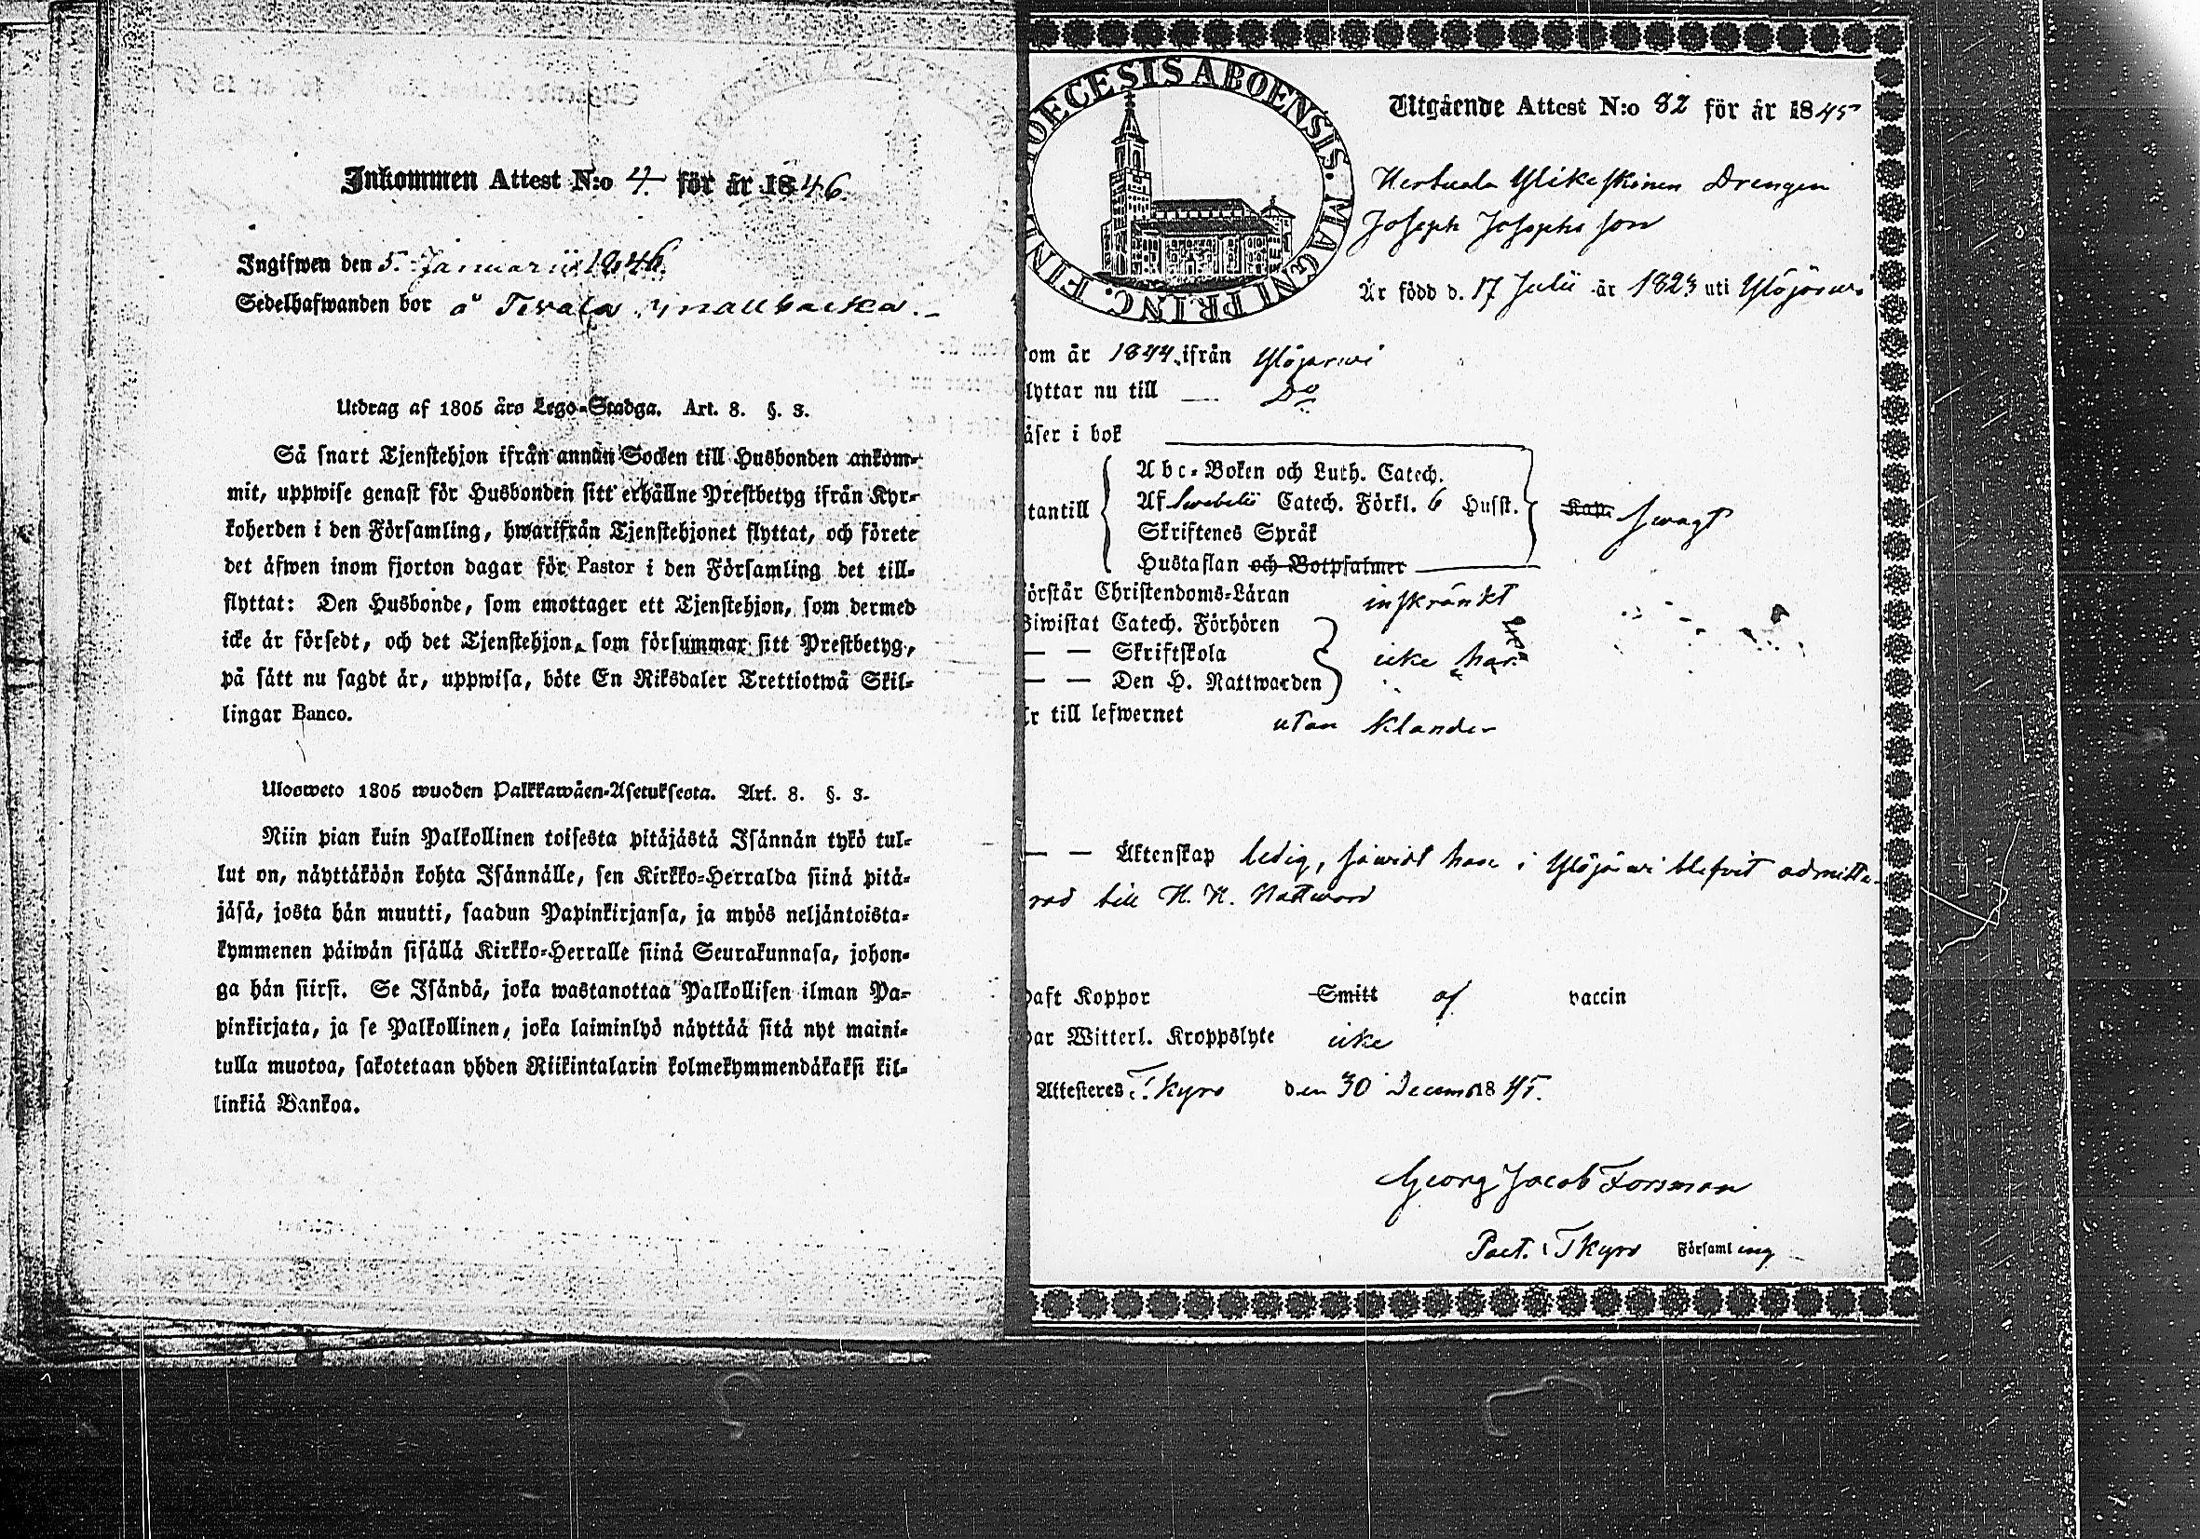 Inkommen Attest N:o 4. för år 1846.
Ingifwen den 5. Januarii 1846.
Sedelhafwanden bor å
Utdrag af 1805 års Lego-Stadga. Art. 8. §. 3.
Så snart Tjenstehjon ifrån annan Socken till Husbonden ankom-
mit, uppwise genast för Husbonden sitt erhållne Prestbetyg ifrån Kyr-
koherden i den Församling, hwarifrån Tjenstehjonet flyttat, och förete
det åfwen inom fjorton dagar för Pastor i den Församling det till-
flyttat: Den Husbonde, som emottager ett Tjenstehjon, som dermed
icke är försedt, och det Tjenstehjon, som försummar sitt Prestbetyg,
på sått nu sagdt är, uppwisa, böte En Riksdaler Trettiotwå Skil-
lingar Banco.
Uloosweto 1805 wuoden Palkkawäen-Asetuksesta. Art. 8. §. 3.
Niin pian kuin Palkollinen toisesta pitäjästä Isännän tykö tul-
lut on, näyttäköön kohta Isännälle, sen Kirkko-Herralda siinä pitä-
jäsä, josta hän muutti, saadun Papinkirjansa, ja myös neljäntoista-
kymmenen päiwän sisällä Kirkko-Herralle siinä Seurakunnasa, johon-
ga hän siirsi. Se Isändä, joka wastanottaa Palkollisen ilman Pa-
pinkirjata, ja se Palkollinen, joka laiminlyö näyttää sitä nyt maini-
tulla muotoa, sakotetaan yhden Riikintalarin kolmekymmendäkaksi kil-
linkiä Bankoa.
DIOECESIS ABOENSIS. MAGNI PRINC. FIN
Utgående Attest N:o 82 för år 1845
Ylikeskinen Drengen
Joseph Josephsson
Är född d. 17 Julii år 1823 uti Ylöjärwi
om år 1844. ifrån Ylöjärwi
lyttar nu till Do
åser i bok
Abc-Boken och Luth. Catech.
tantill Af Swebelii Catech. Förkl. 6 Husst. Kap. swagt
Skriftenes Språk
Hustaflan och Botpsalmer
örstår Christendoms-Läran inskränkt
Biwistat Catech. Förhören
— — Skriftskola icke har
— — Den H. Nattwarden
r till lefwernet utan klander
— — Äktenskap ledig, såwidt han i Ylöjärwi blefvit admitte-
rad till H. H. Nattward
haft Koppor Smitt af vaccin
har Witterl. Kroppslyte icke
Attesteres T. Kyro den 30 Decemb 1845.
Georg Jacob Forsman
Past. i T Kyro Församling